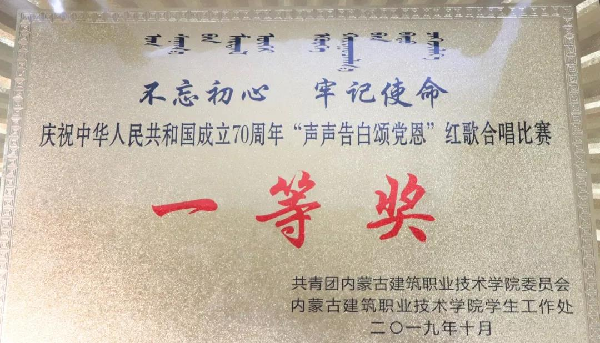 不忘初心 牢记使命
庆祝中华人民共和国成立70周年“声声告白颂党恩”红歌合唱比赛
一等奖
共青团内蒙古建筑职业技术学院委员会
内蒙古建筑职业技术学院学生工作处
二〇一九年十月